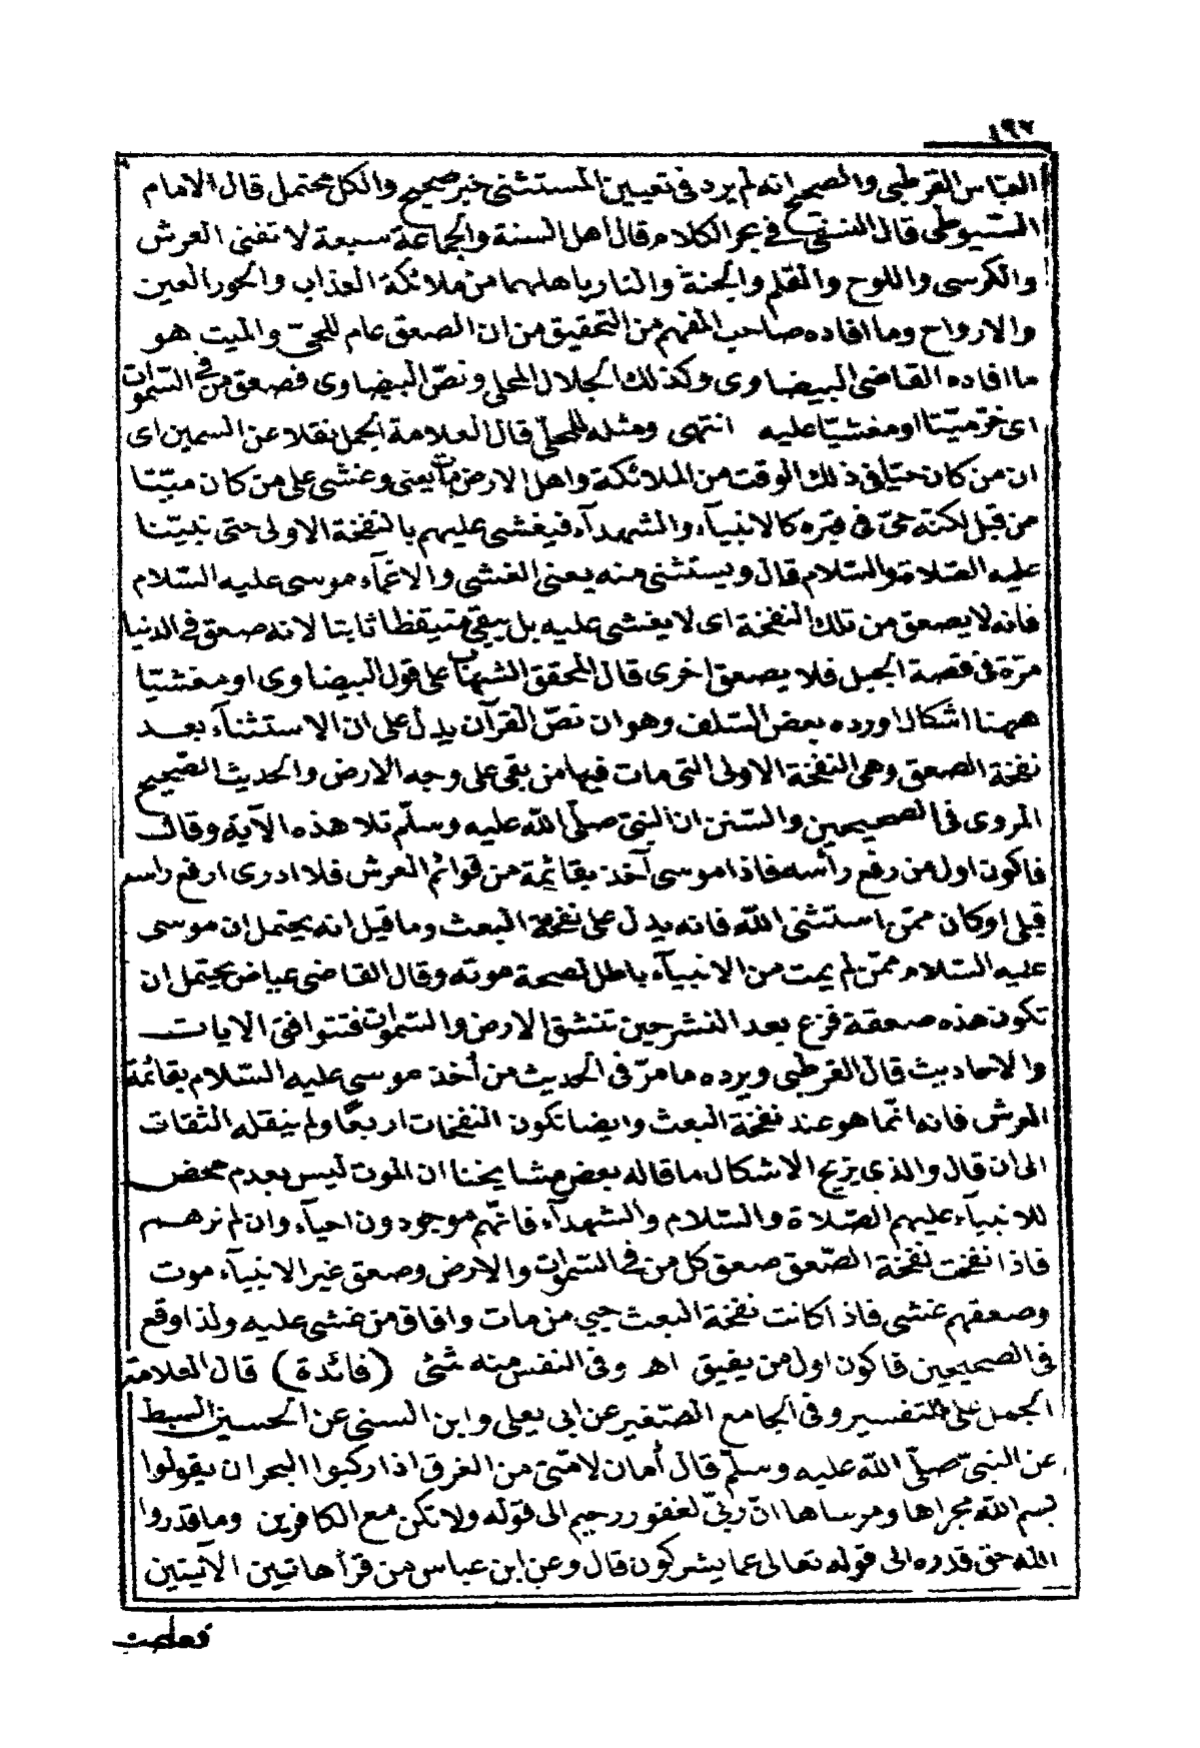 ١٩٢
العباس القرطبى والصحيح انه لم يرد فى تعيين المستثنى خبر صحيح والكل محتمل قال الامام
السيوطى قال النسفى فى بحر الكلام قال اهل السنة والجماعة سبعة لا تفنى العرش
والكرسى واللوح والقلم والجنة والنار باهلهما من ملائكة العذاب والحور العين
والارواح وما افاده صاحب المفهم من التحقيق من ان الصعق عام للحى والميت هو
ما افاده القاضى البيضاوى وكذلك الجلال المحلى ونص البيضاوى فصعق من فى السموات
اى خر ميتا او مغشيا عليه انتهى ومثله للمحلى قال العلامة الجمل نقلا عن السمين اى
ان من كان حيا فى ذلك الوقت من الملائكة واهل الارض مات يعنى وغشى على من كان ميتا
من قبل لكنه حى فى قبره كالانبيآء والشهدآء فيغشى عليهم بالنفخة الاولى حتى نبينا
عليه الصلاة والسلام قال ويستثنى منه يعنى الغشى والاغمآء موسى عليه السلام
فانه لا يصعق من تلك النفخة اى لا يغشى عليه بل يبقى متيقظا ثابتا لانه صعق فى الدنيا
مرة فى قصة الجبل فلا يصعق اخرى قال المحقق الشهاب على قول البيضاوى او مغشيا
ههنا اشكال اورده بعض السلف وهو ان نص القرآن يدل على ان الاستثنآء بعد
نفخة الصعق وهى النفخة الاولى التى مات فيها من بقى على وجه الارض والحديث الصحيح
المروى فى الصحيحين والسنن ان النبى صلى الله عليه وسلم تلا هذه الآية وقال
فاكون اول من رفع رأسه فاذا موسى آخذ بقائمة من قوائم العرش فلا ادرى ارفع راسه
قبلى او كان ممن استثنى الله فانه يدل على نفخة البعث وما قيل انه يحتمل ان موسى
عليه السلام ممن لم يمت من الانبيآء باطل لصحة موته وقال القاضى عياض يحتمل ان
تكون هذه صعقة فزع بعد النشر حين تنشق الارض والسموات فتتوافق الايات
والاحاديث قال القرطبى ويرده ما مر فى الحديث من أخذ موسى عليه السلام بقائمة
العرش فانه انما هو عند نفخة البعث وايضا تكون النفخات اربعا ولم ينقله الثقات
الى ان قال والذى يزيح الاشكال ما قاله بعض مشايخنا ان الموت ليس بعدم محض
للانبيآء عليهم الصلاة والسلام والشهدآء فانهم موجودون احيآء وان لم نرهم
فاذا نفخت نفخة الصعق صعق كل من فى السموات والارض وصعق غير الانبيآء موت
وصعقهم غشى فاذا كانت نفخة البعث حيي من مات وافاق من غشى عليه ولذا وقع
فى الصحيحين فاكون اول من يفيق اهـ وفى النفس منه شئ (فائدة) قال العلامة
الجمل على التفسير وفى الجامع الصغير عن ابى يعلى وابن السنى عن الحسين السبط
عن النبى صلى الله عليه وسلم قال أمان لامتى من الغرق اذا ركبوا البحر ان يقولوا
بسم الله مجراها ومرساها ان ربى لغفور رحيم الى قوله ولا تكن مع الكافرين وما قدروا
الله حق قدره الى قوله تعالى عما يشركون قال وعن ابن عباس من قرأ هاتين الآيتين
فعطبت